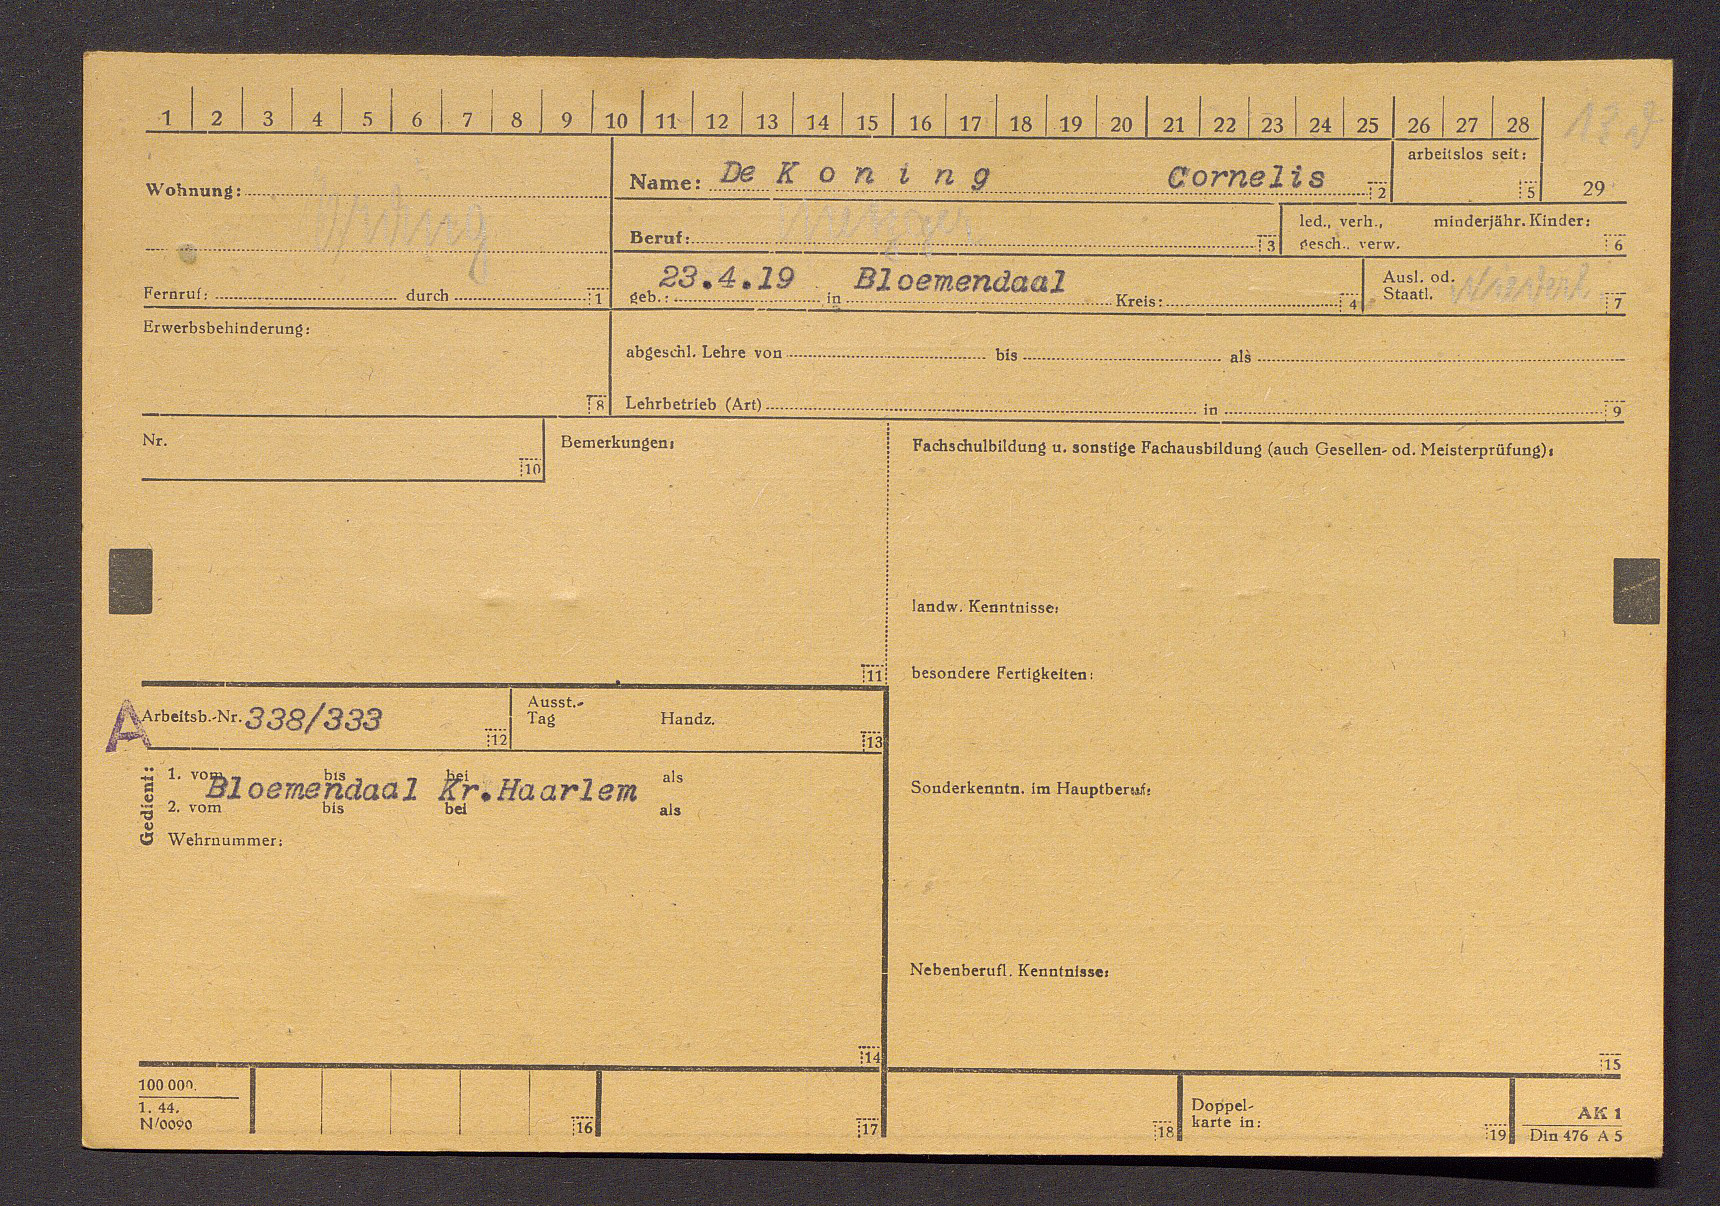 1 2 3 4 5 6 7 8 9 10 11 12 13 14 15 16 17 18 19 20 21 22 23 24 25 26 27 28
Name: De K o n i n g Cornelis 2
arbeitslos seit: 5
29
Wohnung:
Beruf: Metzger 3
led., verh., minderjähr. Kinder:
gesch., verw. 6
23.4.19 Bloemendaal
Fernruf: durch 1
geb.: in Kreis: 4
Ausl. od.
Staatl. 7
Erwerbsbehinderung:
8
abgeschl. Lehre von bis als
Lehrbetrieb (Art) in 9
Nr.
10
Bemerkungen:
11
Fachschulbildung u. sonstige Fachausbildung (auch Gesellen- od. Meisterprüfung):
landw. Kenntnisse:
besondere Fertigkeiten:
A
Arbeitsb.-Nr. 338/333 12
Ausst.-
Tag Handz.
13
Gedient:
1. vom bis bei als
Bloemendaal Kr.Haarlem
2. vom bis bei als
Wehrnummer:
14
Sonderkenntn. im Hauptberuf:
Nebenberufl. Kenntnisse:
15
100 000.
1. 44.
N/0090
16
17
18
Doppel-
karte in:
19
AK 1
Din 476 A 5